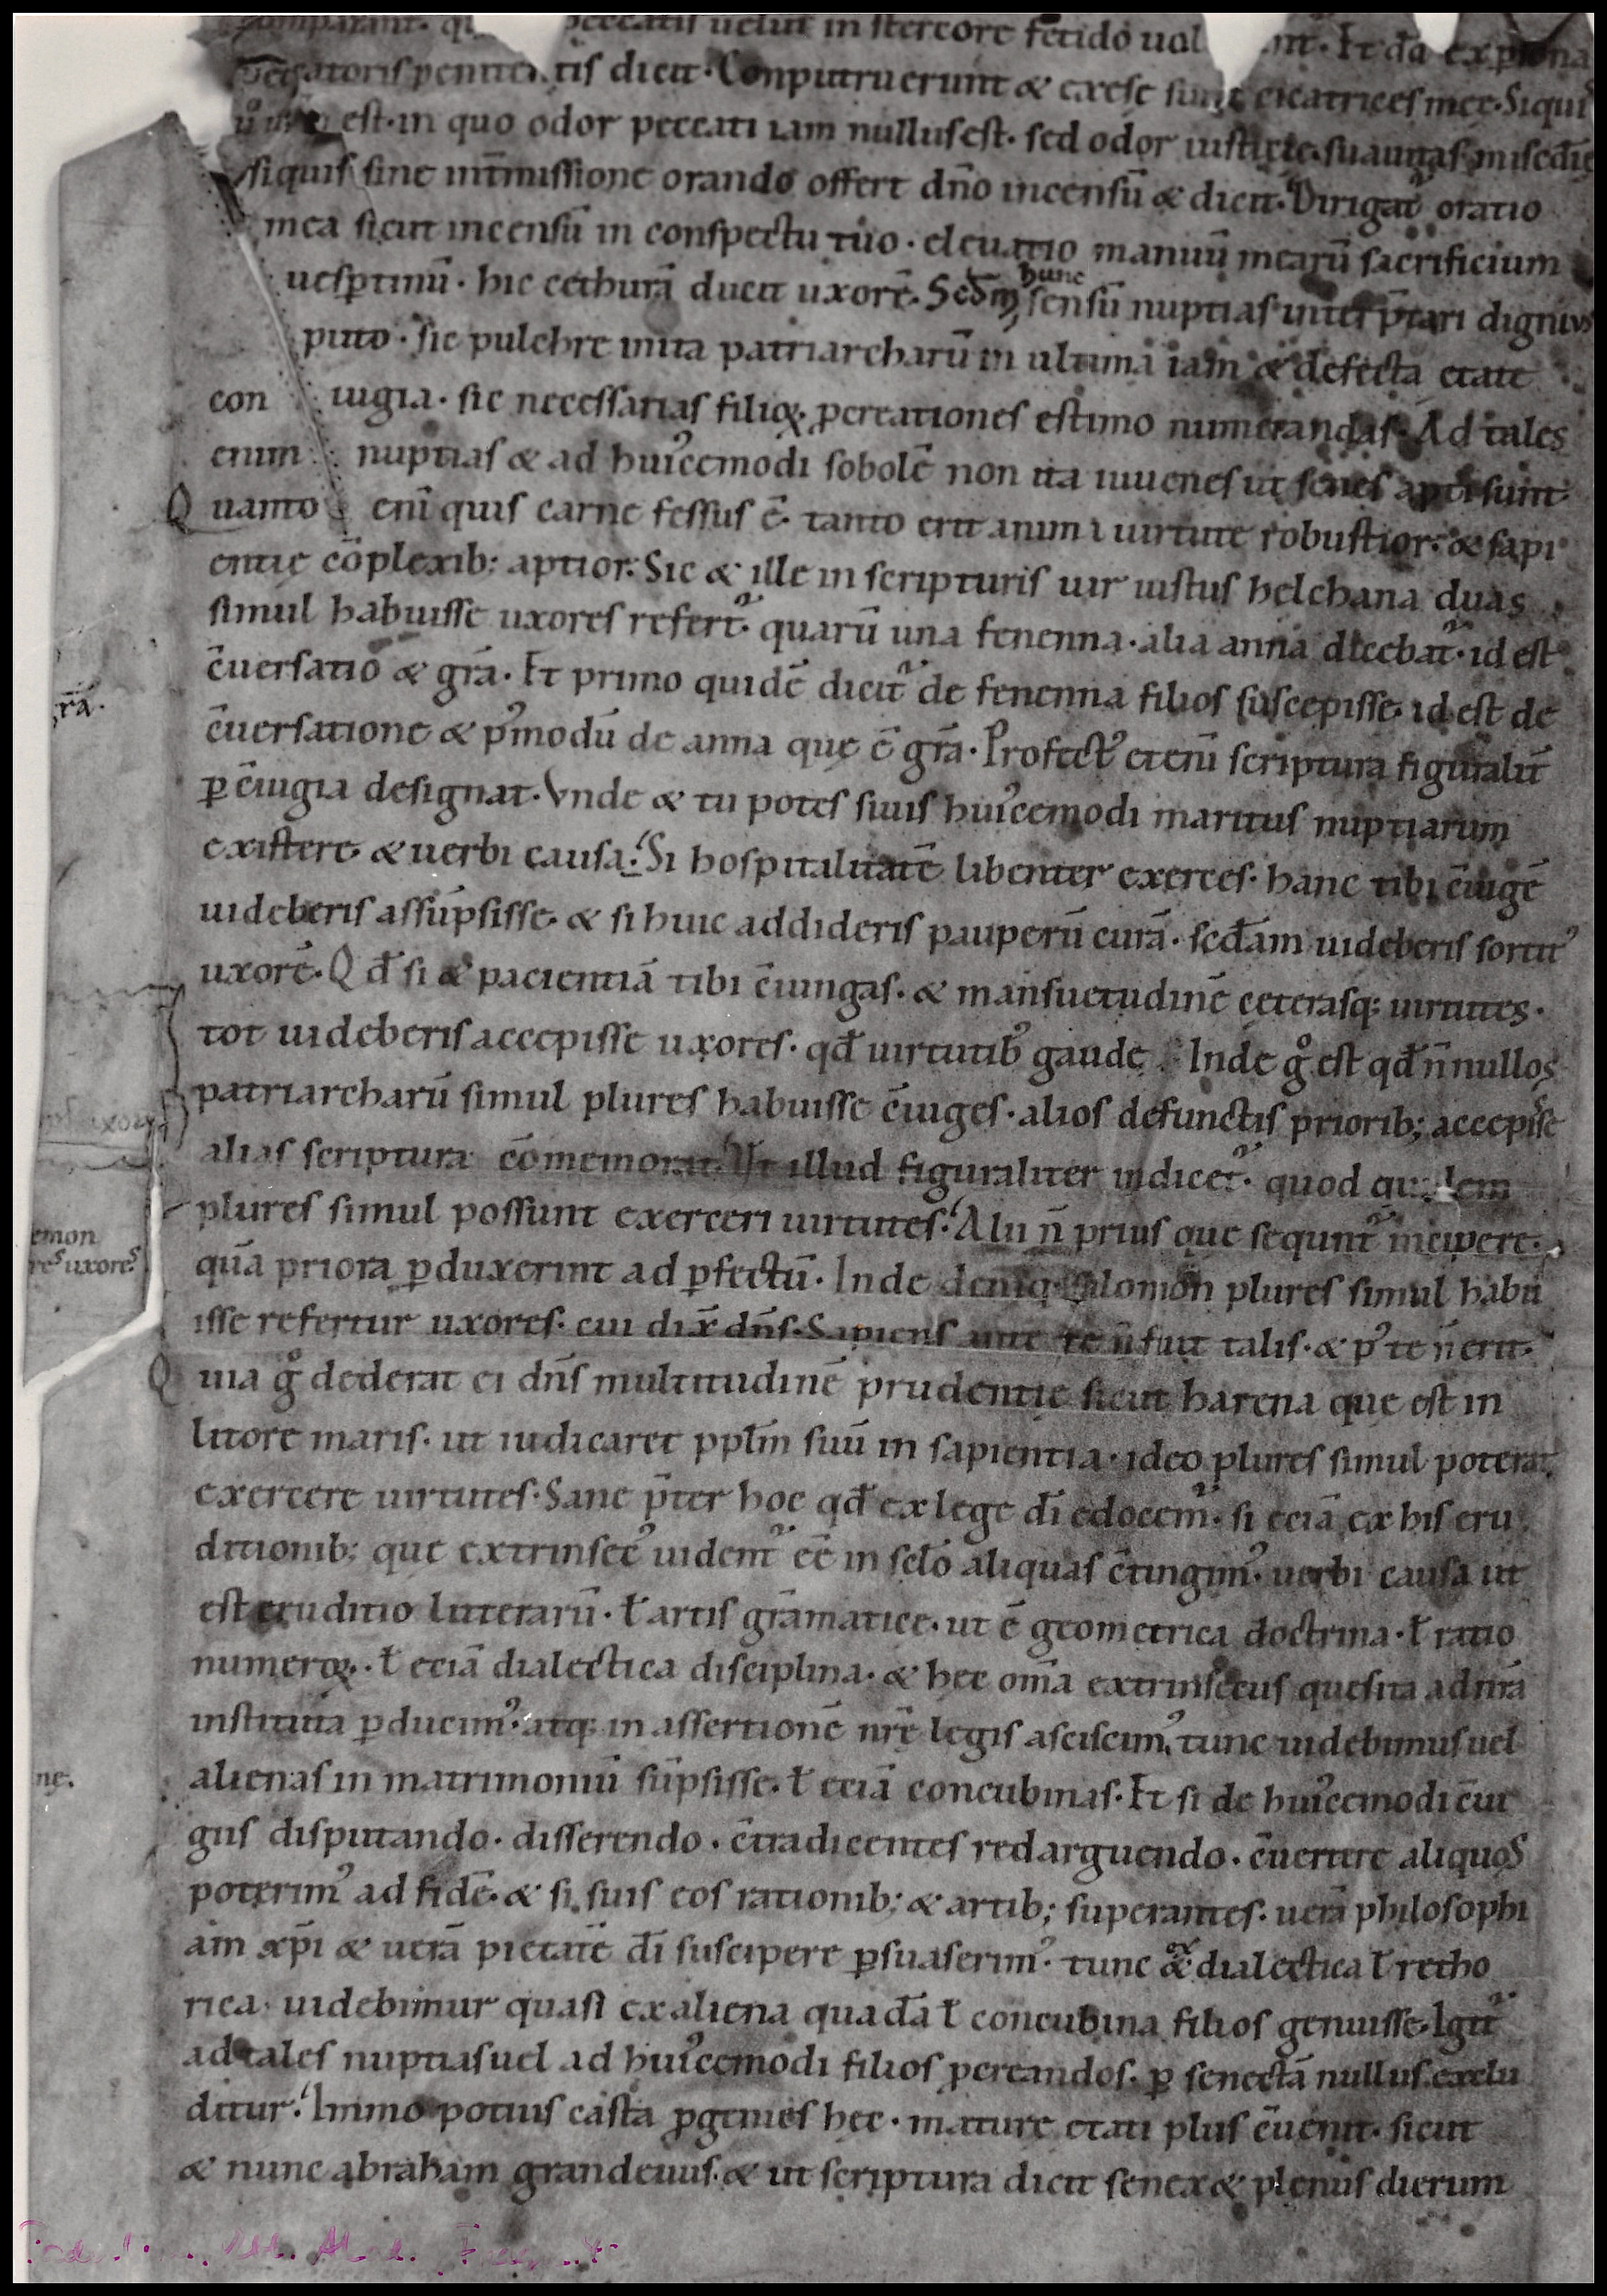 comparant. peccatis uelut in stercore fetido uol nt. Et đa ex psona
peccatoris penitentis dicit. Conputruerunt & exesę sunt cicatrices meę. Siquis
est. in quo odor peccati iam nullus est. sed odor iustitię. suauitas misc̄dię
siquis sine int̄missione orando offert dn̄o incensū & dicit. Dirigat᷑ oratio
mea sicut incensū in conspectu tuo. eleuatio manuū mearū sacrificium
uesp̄tinū. hic cethurā ducit uxorē. Scd̄m hunc sensū nuptias interp̄tari dignius
puto. sic pulchre inita patriarcharū in ultima iam & defecta etate
con iugia. sic necessarias filioꝝ ꝓcreationes estimo numerandas. Ad tales
enim nuptias & ad hui᾽cemodi sobolē non ita iuuenes ut senes apti sunt.
Quanto enī quis carne fessus ē. tanto erit animi uirtute robustior. & sapi
entię cōplexib; aptior. Sic & ille in scripturis uir iustus helchana duas
simul habuisse uxores refert᷑. quarū una fenenna. alia anna dicebat᷑. id est
c̄uersatio & gr̄a. Et primo quidē dicit᷑ de fenenna filios suscepisse. id est de
r̄a.
c̄uersatione & p᾽modū de anna quę ē gr̄a. Profect᾽ etenī scriptura figuralit̄
ꝑ c̄iugia designat. Vnde & tu potes si uis hui᾽cemodi maritus nuptiarum
existere. & uerbi causa. Si hospitalitatē libenter exerces. hanc tibi c̄iugē
uideberis assūpsisse. & si huic addideris pauperū curā. sec̄dam uideberis sortit᾽
uxorē. Qđ si & pacientiā tibi c̄iungas. & mansuetudinē ceterasq; uirtutes.
tot uideberis accepisse uxores. qđ uirtutib᾽ gaude . Inde g̊ est qđ n̄nullos
patriarcharū simul plures habuisse c̄iuges. alios defunctis priorib; accepisse
alias scriptura cōmemorat. Vt illud figuraliter indicet᷑. quod quidem
plures simul possunt exerceri uirtutes. Alii n̄ prius quę sequnt᷑ incipere.
emon
qua priora ꝑduxerint ad ꝑfectū. Inde deniq; salomon plures simul habu
res uxores
isse refertur uxores. cui dix̄ dn̄s. Sapiens ante te n̄ fuit talis. & p᾽ te n̄ erit.
Quia g̊ dederat ei dn̄s multitudinē prudentię sicut harena quę est in
litore maris. ut iudicaret ppl̄m suū in sapientia. ideo plures simul poterat
exercere uirtutes. Sane p̄ter hoc qđ ex lege dī edocem᷑. si eciā ex his eru
ditionib; que extrinsec᾽ uident᷑ eē in sc̄lo aliquas c̄tingim᾽. uerbi causa ut
est eruditio litterarū. ł artis grāmaticę. ut ē geometrica doctrina. ł ratio
numeroꝝ. ł eciā dialectica disciplina. & hec om̄a extrinsecus quesita ad nr̄a
instituta ꝑducim᾽. atq; in assertionē nr̄ę legis asciscim᾽. tunc uidebimus uel
ne.
alienas in matrimoniū sūpsisse. ł eciā concubinas. Et si de hui᾽cemodi c̄iu
giis disputando. disserendo. c̄tradicentes redarguendo. c̄uertere aliquos
poterim᾽ ad fidē. & si suis eos rationib; & artib; superantes. uerā philosophi
am xp̄i & uerā pietatē dī suscipere ꝑsuaserim᾽. tunc ex dialectica ł retho
rica uidebimur quasi ex aliena quadā ł concubina filios genuisse. Igit᷑
ad tales nuptias uel ad hui᾽cemodi filios ꝓcreandos. ꝑ senectā nullus exclu
ditur. Immo potius casta ꝓgenies hec. mature etati plus c̄uenit. sicut
& nunc abraham grandeuus. & ut scriptura dicit senex & plenus dierum